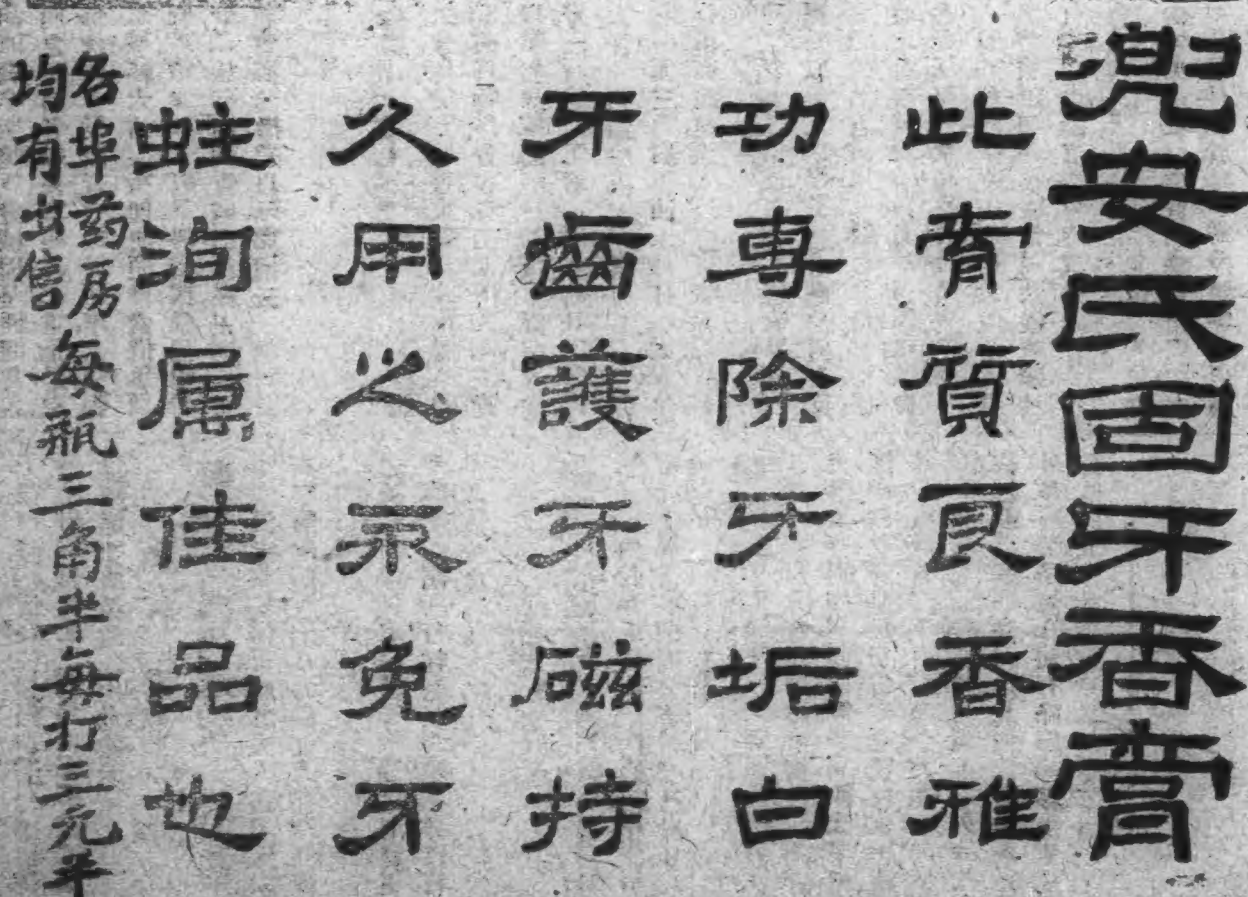 兜安氏固牙香膏
此膏質良香雅
功專除牙垢白
牙齒護牙磁持
久用之永免牙
蛀洵属佳品也
各埠药房
均有出售
每瓶三角半每打三元半